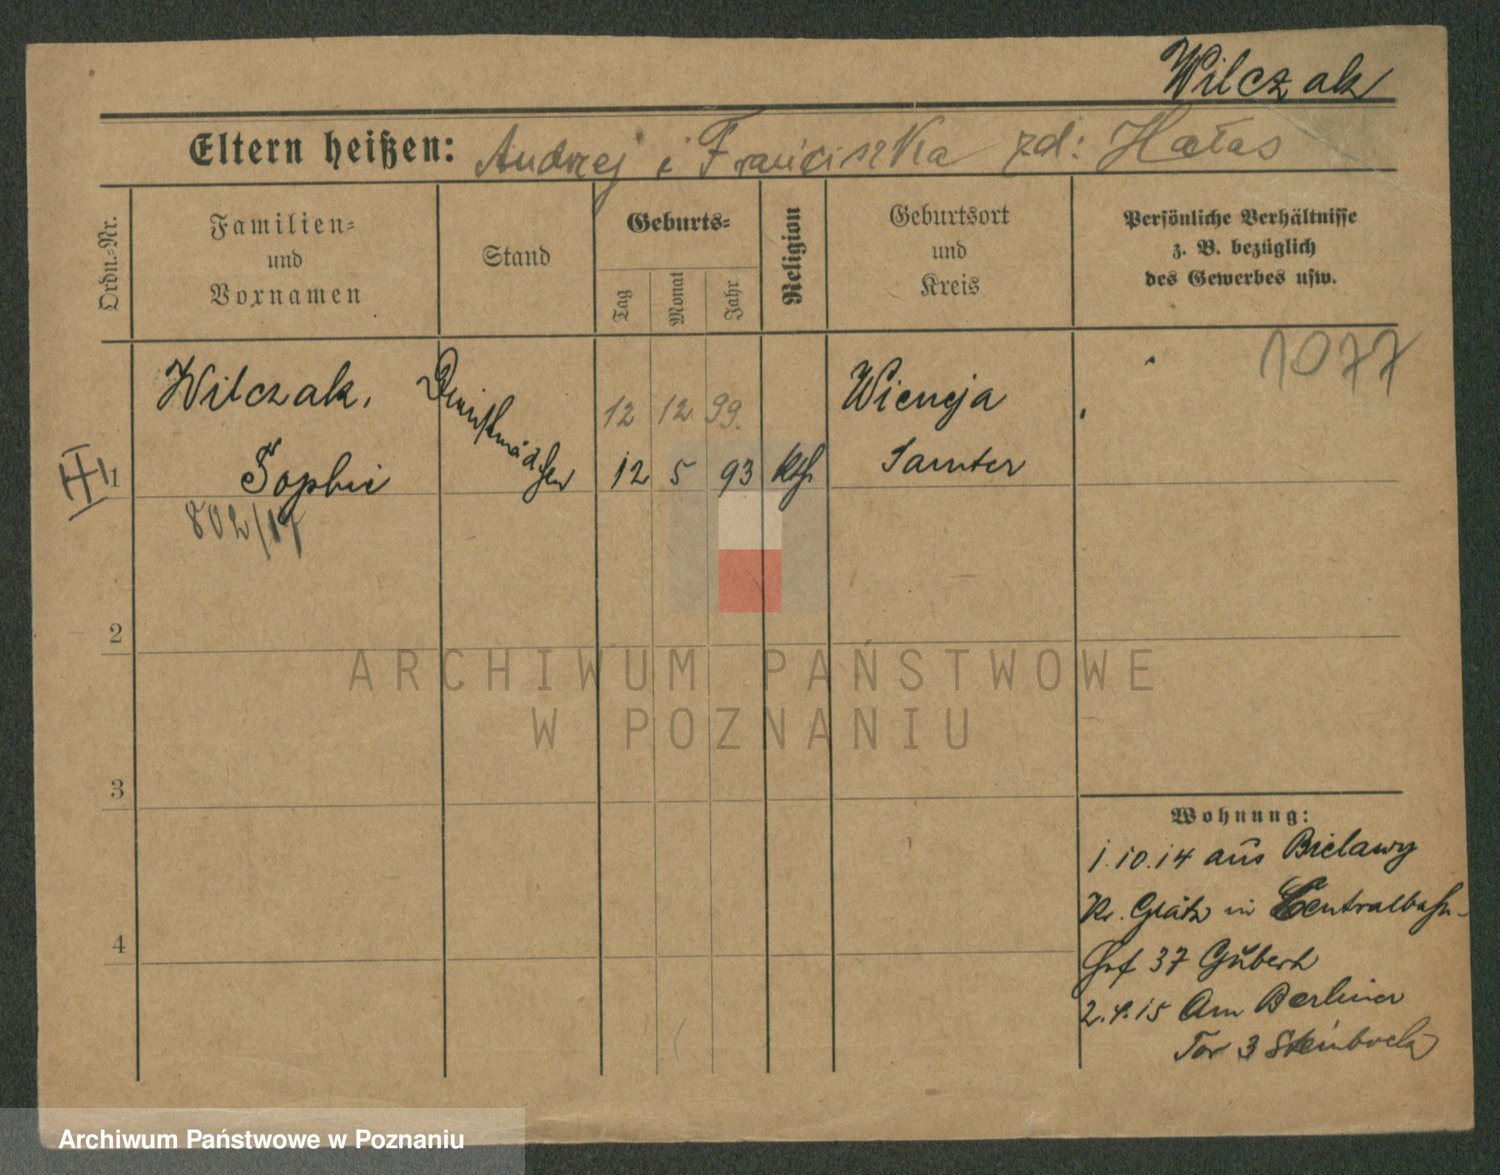 Wilczak
Eltern heißen: Andrzej i Franciszka zd: Hałas
Ordn.-Nr.
Familien-
und
Vornamen
Stand
Geburts-
Tag
Monat
Jahr
Religion
Geburtsort
und
Kreis
Persönliche Verhältnisse
z. B. bezüglich
des Gewerbes usw.
1077
Wilczak,
Dienstmädchen
12 12 99.
Wieneja
1
Sophie
12 5 93 kth
Samter
802/17
2
ARCHIWUM PAŃSTWOWE
W POZNANIU
3
Wohnung:
1.10.14 aus Bielawy
Kr. Grätz in Centralbahn-
hof 37
4
2.4.15 Am Berliner
Tor 3 Steinbock
Archiwum Państwowe w Poznaniu